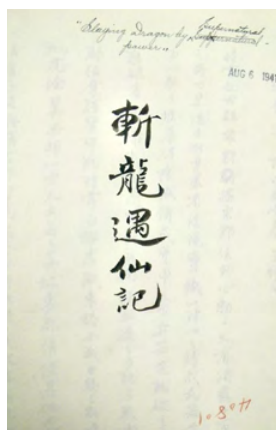 "Slaying dragon by Supernatural
power"
AUG 6 1941
斬龍遇仙記